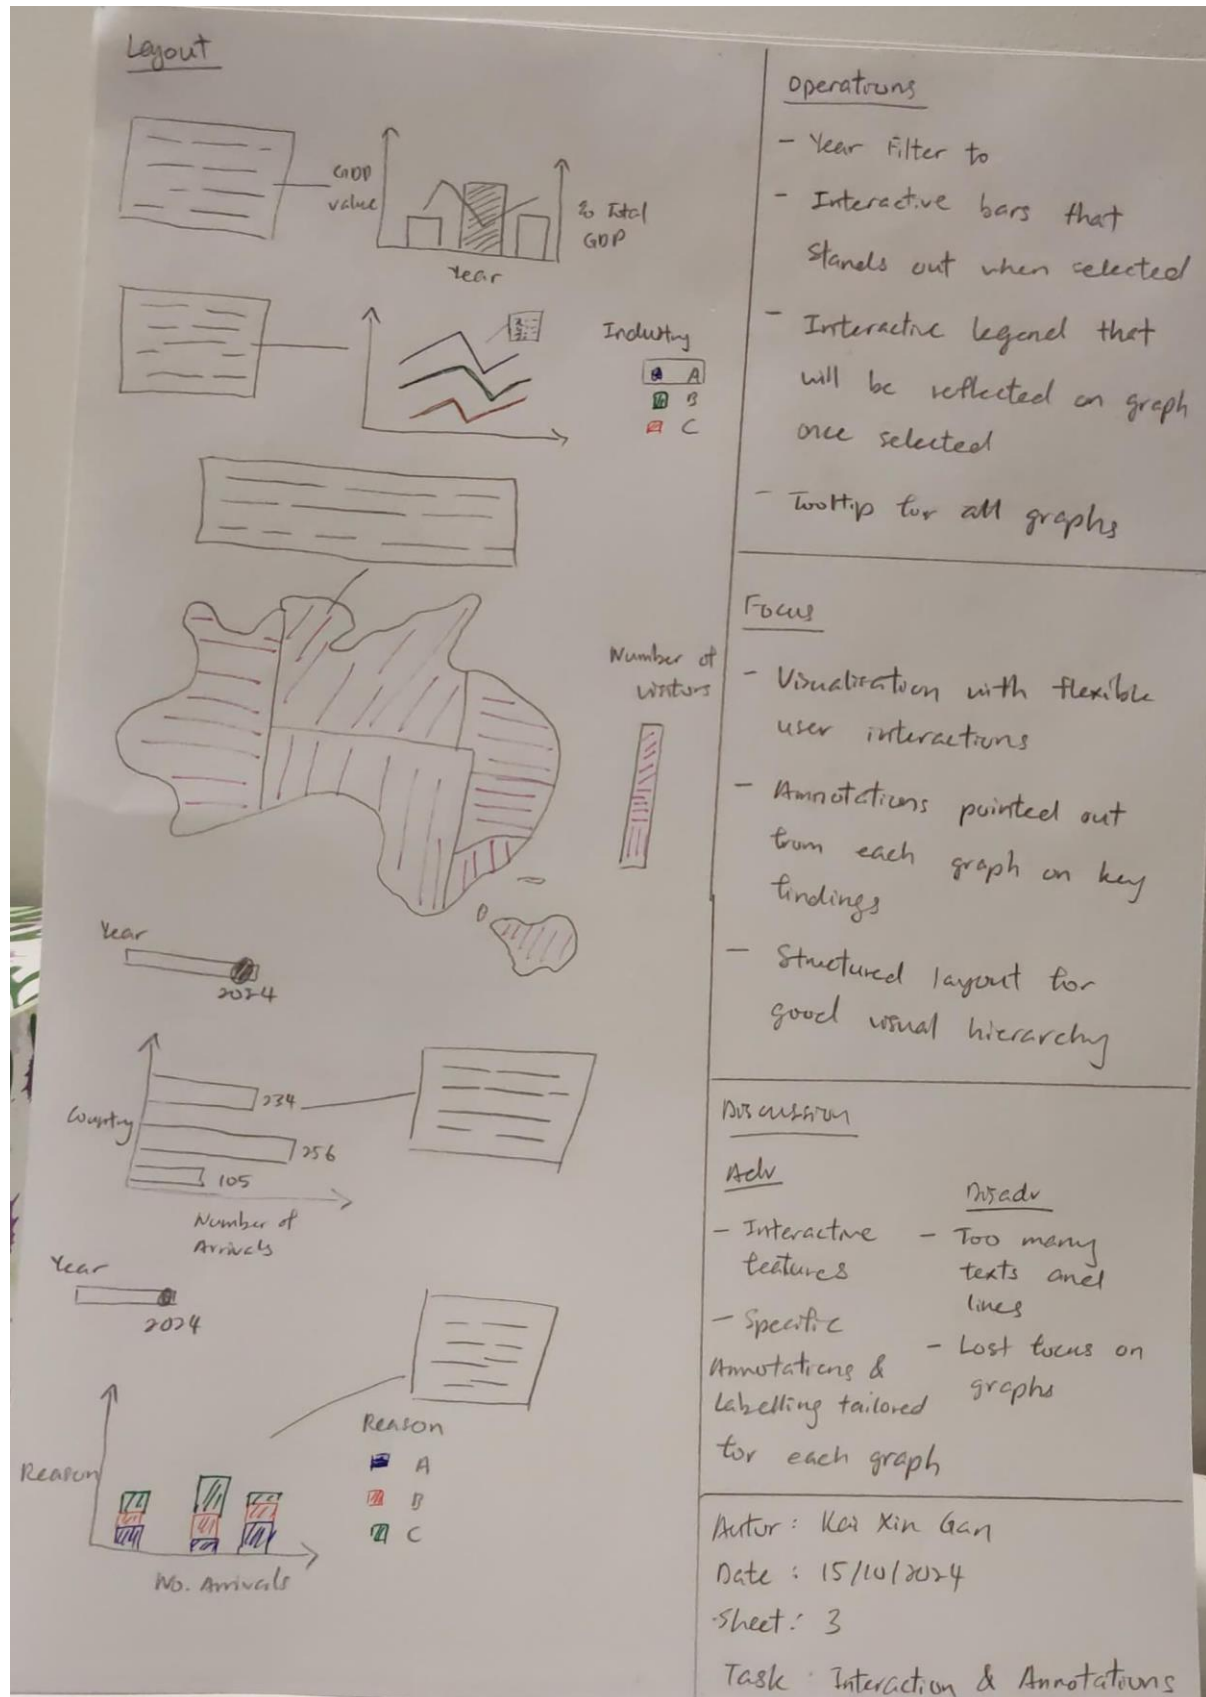 Layout
GDP
value
% Total
GDP
Year
Industry
A
B
C
Number of
visitors
Year
2024
Country
234
256
105
Number of
Arrivals
Year
2024
Reason
Reason
A
B
C
No. Arrivals
Operations
- Year Filter to
- Interactive bars that
stands out when selected
- Interactive legend that
will be reflected on graph
once selected
- Tooltip for all graphs
Focus
- Visualisation with flexible
user interactions
- Annotations pointed out
from each graph on key
findings
- Structured layout for
good visual hierarchy
Discussion
Adv
- Interactive
features
- Specific
Annotations &
Labelling tailored
for each graph
Disadv
- Too many
texts and
lines
- Lost focus on
graphs
Autor : Kai Xin Gan
Date : 15/10/2024
Sheet : 3
Task : Interaction & Annotations